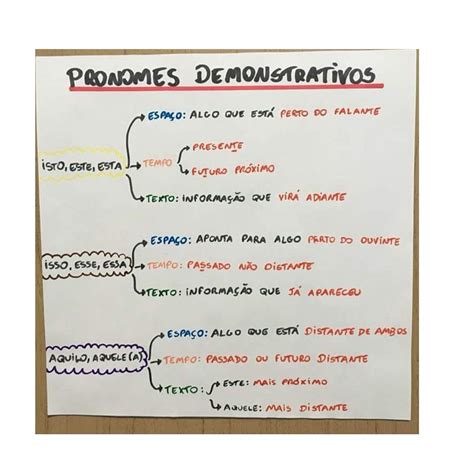 PRONOMES DEMONSTRATIVOS
ESPAÇO: ALGO QUE ESTÁ PERTO DO FALANTE
ISTO, ESTE, ESTA
TEMPO
PRESENTE
FUTURO PRÓXIMO
TEXTO: INFORMAÇÃO QUE VIRÁ ADIANTE
ESPAÇO: APONTA PARA ALGO PERTO DO OUVINTE
ISSO, ESSE, ESSA
TEMPO: PASSADO NÃO DISTANTE
TEXTO: INFORMAÇÃO QUE JÁ APARECEU
ESPAÇO: ALGO QUE ESTÁ DISTANTE DE AMBOS
AQUILO, AQUELE(A)
TEMPO: PASSADO OU FUTURO DISTANTE
TEXTO:
ESTE: MAIS PRÓXIMO
AQUELE: MAIS DISTANTE